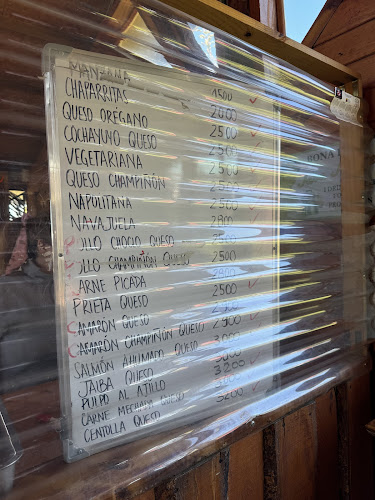 MANZANA
CHAPARRITAS 1500
QUESO OREGANO 2000
COCHAYUYO QUESO 2500
VEGETARIANA 2500
QUESO CHAMPIÑÓN 2500
NAPOLITANA 2500
NAVAJUELA 2900
OLLO CHOCLO QUESO 2500
OLLO CHAMPIÑON QUESO 2500
CARNE PICADA
PRIETA QUESO 2500
CAMARÓN QUESO
CAMARÓN CHAMPIÑÓN QUESO 2900
SALMÓN AHUMADO QUESO 3000
JAIBA QUESO
PULPO AL AJILLO 3200
CARNE MECHADA QUESO
CENTOLLA QUESO 3200